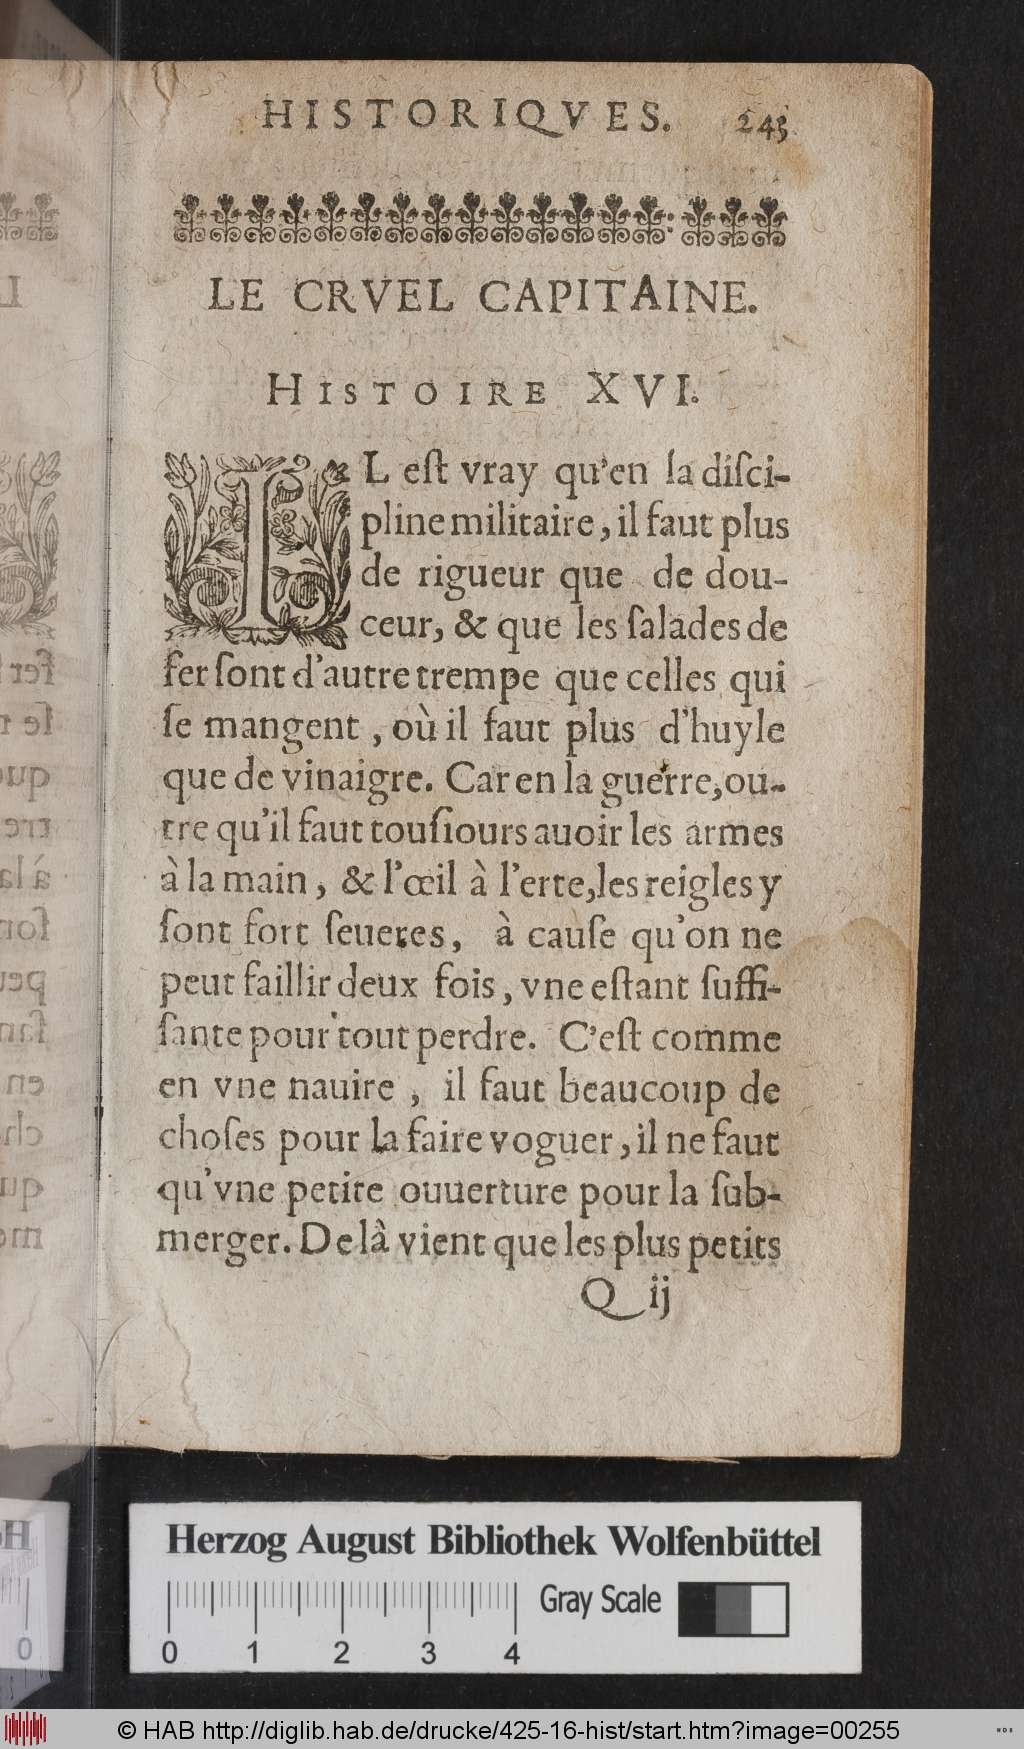 HISTORIQVES. 243
LE CRVEL CAPITAINE.
HISTOIRE XVI.
IL eſt vray qu'en la diſci-
pline militaire, il faut plus
de rigueur que de dou-
ceur, & que les ſalades de
fer ſont d'autre trempe que celles qui
ſe mangent, où il faut plus d'huyle
que de vinaigre. Car en la guerre, ou-
tre qu'il faut touſiours auoir les armes
à la main, & l'œil à l'erte, les reigles y
ſont fort ſeueres, à cauſe qu'on ne
peut faillir deux fois, vne eſtant ſuffi-
ſante pour tout perdre. C'eſt comme
en vne nauire, il faut beaucoup de
choſes pour la faire voguer, il ne faut
qu'vne petite ouuerture pour la ſub-
merger. De là vient que les plus petits
Q ij
Herzog August Bibliothek Wolfenbüttel
Gray Scale
0 1 2 3 4
© HAB http://diglib.hab.de/drucke/425-16-hist/start.htm?image=00255